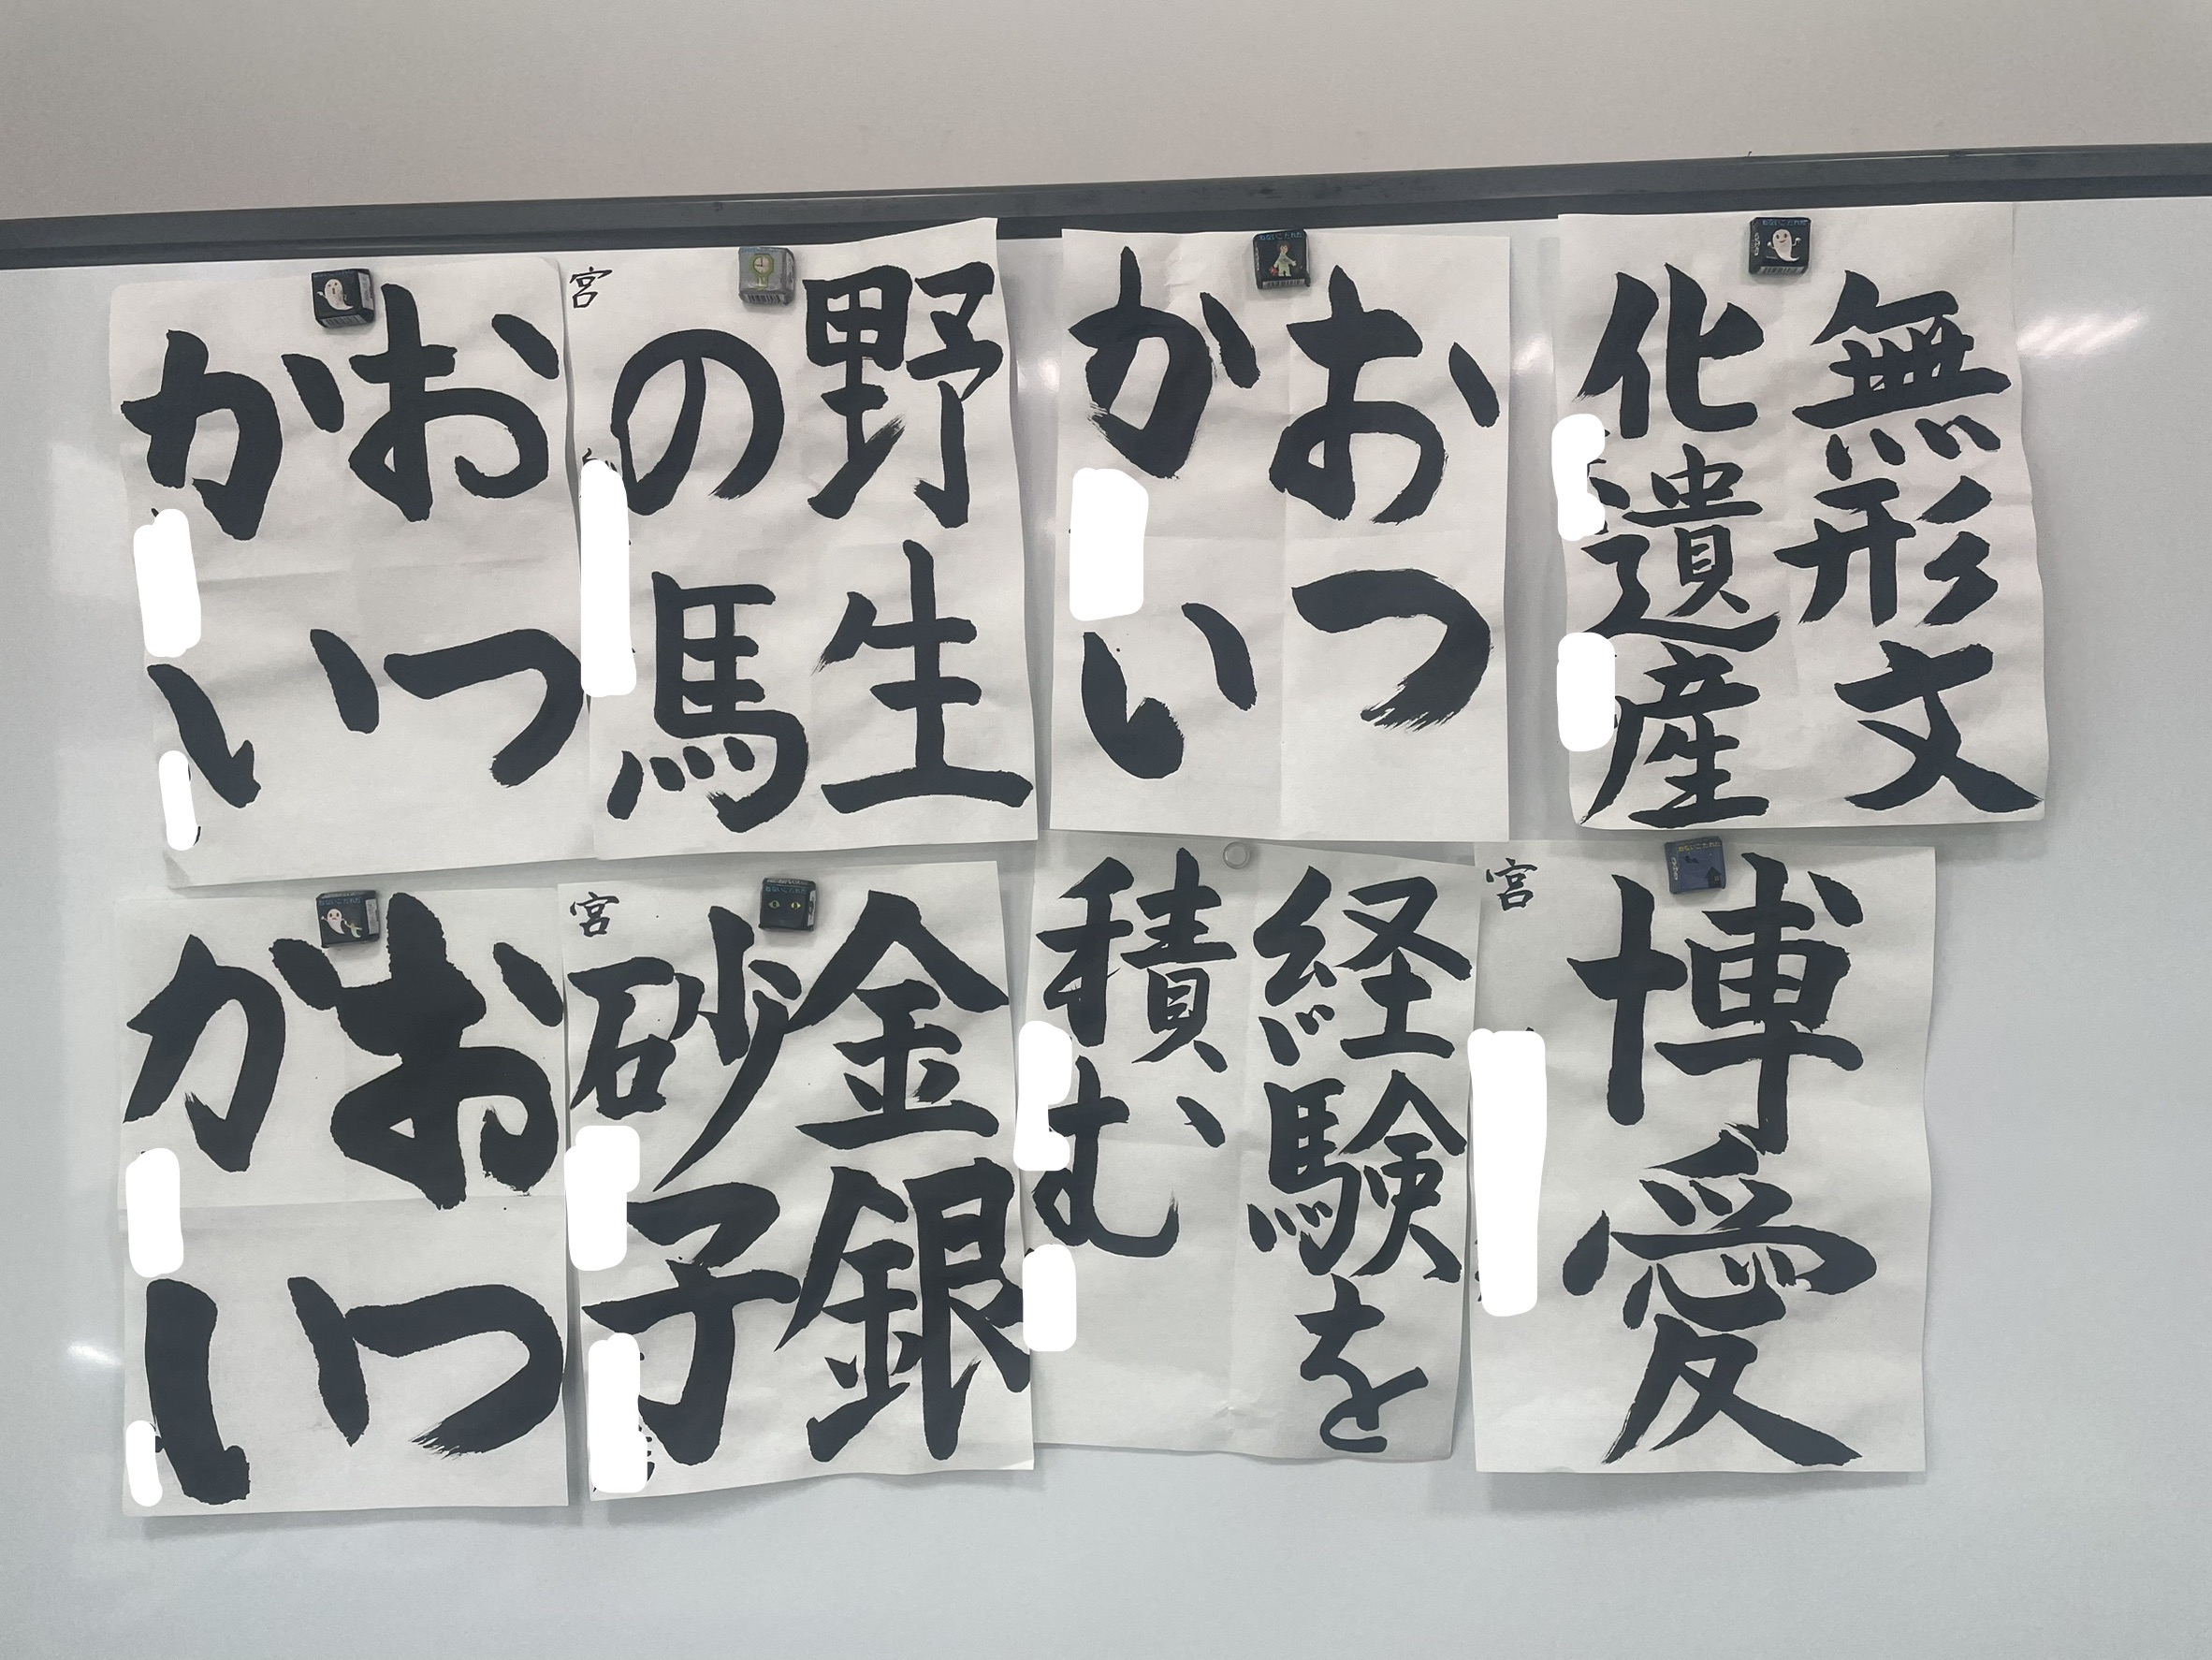 無形文
化遺産
おつ
かい
野生
の馬
宮
おつ
かい
博愛
宮
経験を
積む
金銀
砂子
宮
おつ
かい